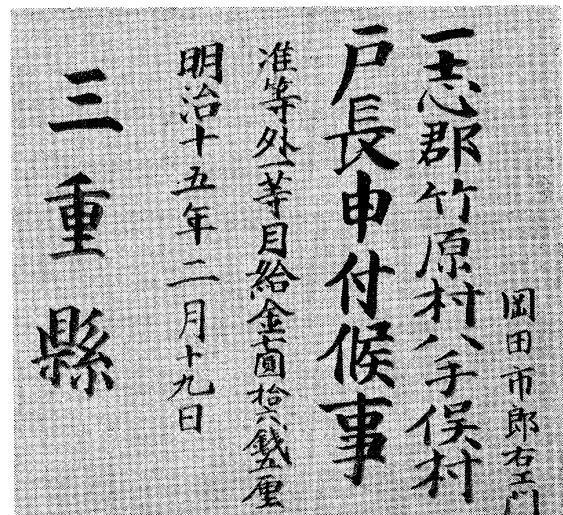 岡田市郎右エ門
一志郡竹原村八手俣村
戸長申付候事
准等外一等月給金壱圓拾六銭五厘
明治十五年二月十九日
三重縣